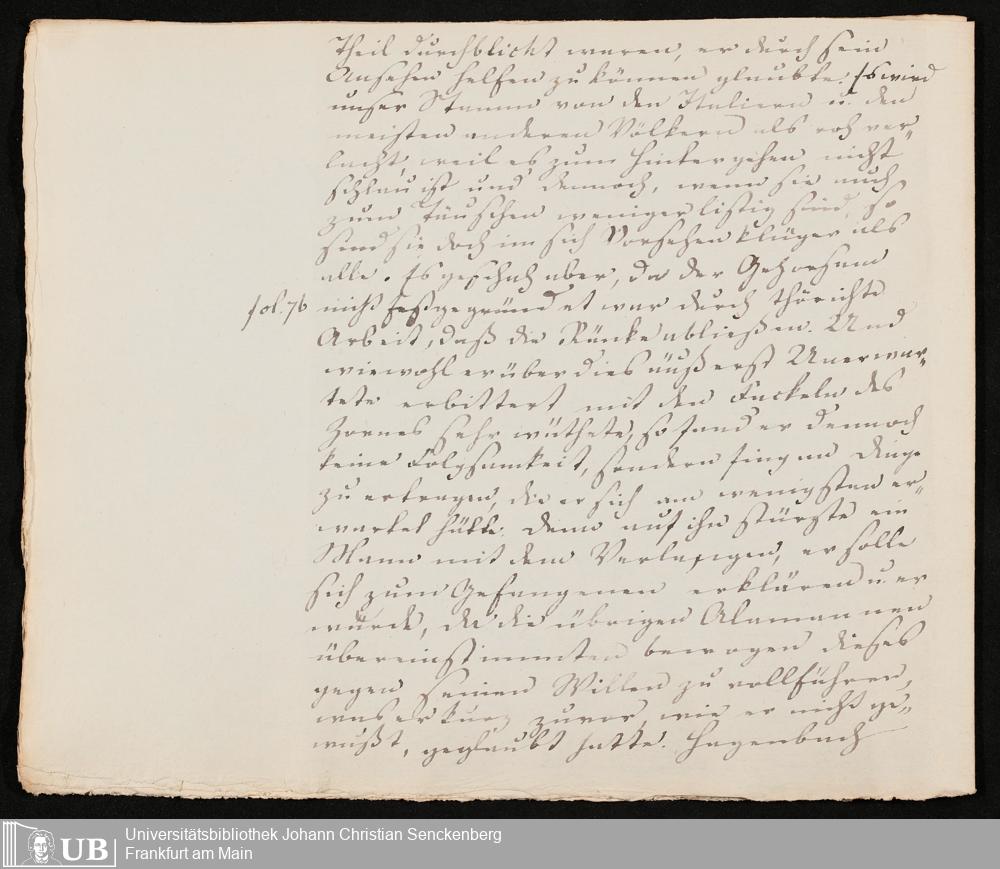 Theil durchblickt waren, er durch sein
Ansehen helfen zu können glaubte. Es wird
unser Stamm von den Italiern u. den
meisten anderen Völkern als roh ver-
lacht, weil es zum Hintergehen nicht
schlau ist und dennoch, wenn sie auch
zum Täuschen weniger listig sind, so
sind sie doch im sich Vorsehen klüger als
alle. Es geschah aber, da der Gehorsam
fol. 76 nicht festgegründet war durch thörichte
Arbeit, daß die Ränke abließen. Und
wiewohl er über dies äußerst Unerwar-
tete erbittert mit den Fackeln des
Zornes sehr wüthete, so fand er dennoch
keine Folgsamkeit, sondern fing an Dinge
zu ertragen, die er sich am wenigsten er-
wartet hätte. Denn auf ihn stürzte ein
Mann mit dem Verlangen, er solle
sich zum Gefangenen erklären u. er
wurde, da die übrigen Alamannen
übereinstimmten bewogen dieses
gegen seinen Willen zu vollführen,
was er kurz zuvor, wie er nicht ge-
wußt, geglaubt hatte. Hagenbach
UB
Universitätsbibliothek Johann Christian Senckenberg
Frankfurt am Main